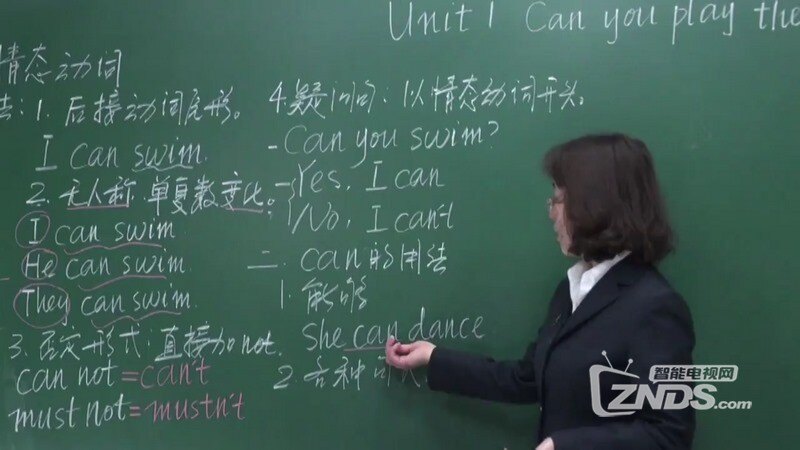 Unit 1 Can you play the
情态动词
法：1. 后接动词原形。
I can swim.
2. 无人称，单复数变化。
I can swim
He can swim.
They can swim.
3. 否定形式：直接加not.
can not = can't
must not = mustn't
4. 疑问句：以情态动词开头。
- Can you swim?
- Yes, I can
No, I can't
二. can的用法
1. 能够
She can dance
2. 各种句式
智能电视网
ZNDS.com